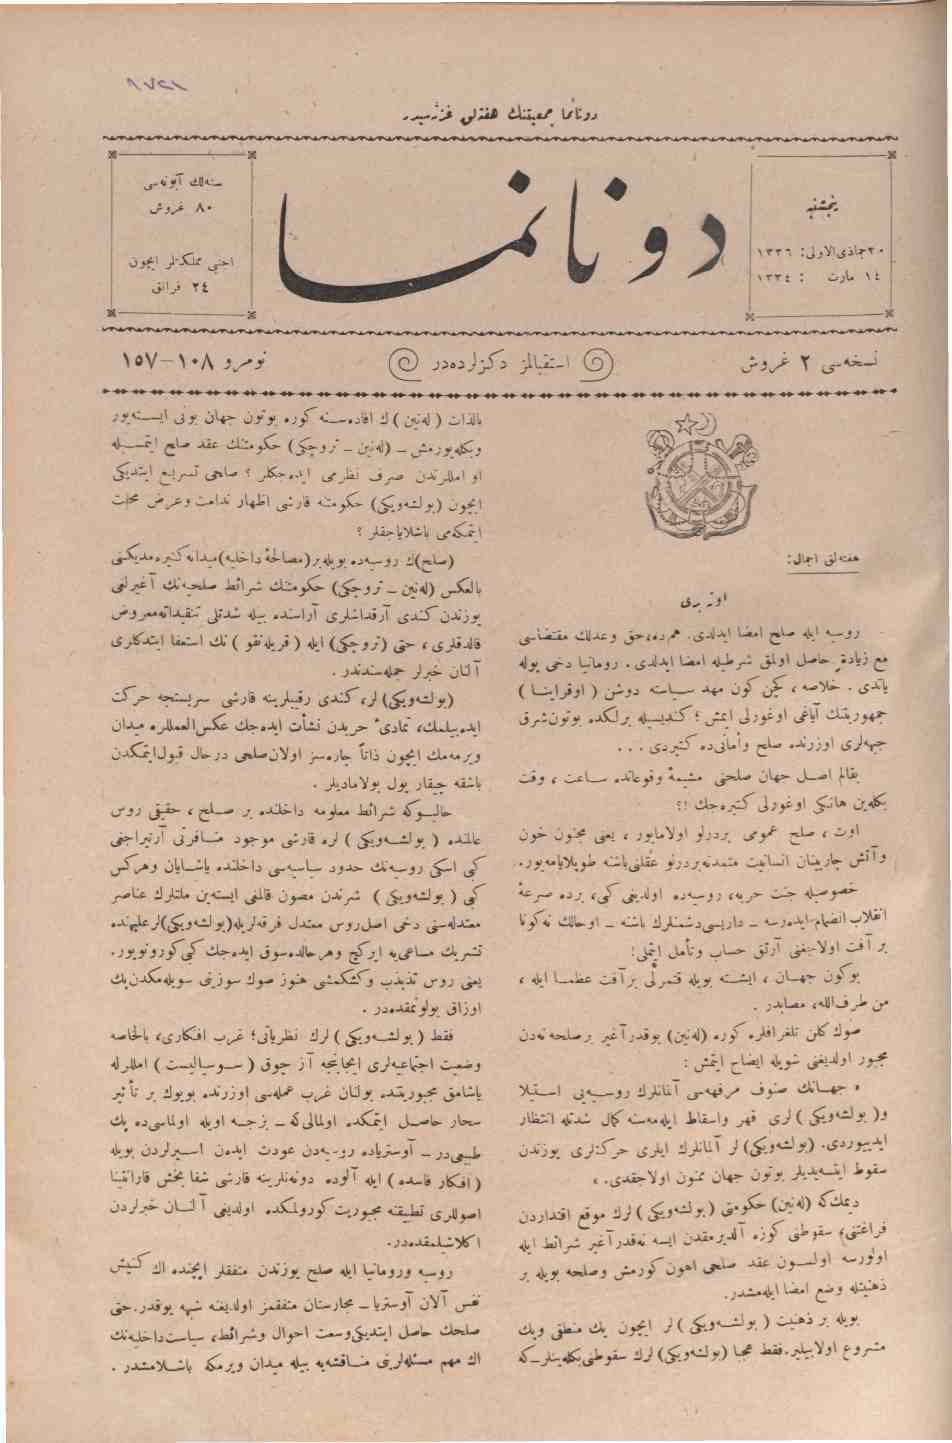 دونانما جمعيتنك هفته‌لق غزته‌سيدر
پنجشنبه
٢٠ جماذى الاولى : ١٣٣٦
١٤ مارت : ١٣٣٤
دونانما
سنه‌لك آبونه‌سى
٨٠ غروش
اجنبى مملكتلر ايچون
٢٤ فرانق
نسخه‌سى ٢ غروش
استقبالمز دكزلرده‌در
نومرو ١٠٨–١٥٧
هفته‌لق اجمال :
اوته برى
روسيه ايله صلح امضا ايدلدى. هم ده، حق وعدلك مقتضاسى
مع زيادةٍ حاصل اولمق شرطيله امضا ايدلدى. رومانيا دخى يوله
ياتدى. خلاصه، كچن كون مهد سياسته دوشن (اوقراينا)
جمهوريتنك آياغى اوغورلى ايمش؛ كنديسيله برلكده بوتون شرق
جبهه‌لرى اوزرنده صلح وأمانى ده كتيردى...
بقالم اصل جهان صلحنى مشيمۀ وقوعاتده ساعت، وقت
بكله‌ين هانكى اوغورلى كتيره‌جك !؟
اوت، صلح عمومى بردرلو اولامايور، يعنى مجنون خون
وآتش چارپينان انسانيت متمدنه بردرلو عقلنى باشنه طوپلايامه‌يور.
خصوصيله جنت حربه، روسيه‌ده اولديغى كبى، برده صرعۀ
انقلاب انضمام ايده‌رسه – داريسى دشمنلرك باشنه – او حالك نه كونا
بر آفت اولاجغنى آرتق حساب وتأمل ايتملى !
بوكون جهان، ايشته بويله قتمرلى بر آفت عظما ايله،
من طرف الله، مصابدر.
صوك كلن تلغرافلره كوره (له‌نين) بوقدر آغير بر صلحه نه‌دن
مجبور اولديغنى شويله ايضاح ايتمش :
« جهانك صنوف مرفهه‌سى آلمانلرك روسيه‌يى استيلا
و (بولشه‌ويكى) لرى قهر واسقاط ايله‌مه‌سنه كمال شدتله انتظار
ايديبوردى. (بولشه‌ويكى) لر آلمانلرك ايلرى حركتلرى يوزندن
سقوط ايتسه‌يديلر بوتون جهان ممنون اولاجقدى. »
ديمك كه (له‌نين) حكومتى (بولشه‌ويكى) لرك موقع اقتداردن
فراغتنى، سقوطنى كوزه آلديرمقدن ايسه نه‌قدر آغير شرائط ايله
اولورسه اولسون عقد صلحى اهون كورمش وصلحه بويله بر
ذهنيتله وضع امضا ايله‌مشدر.
بويله بر ذهنيت (بولشه‌ويكى) لر ايچون پك منطقى وپك
مشروع اولابيلير. فقط عجبا (بولشه‌ويكى) لرك سقوطنى بكله‌ينلر – كه
بالذات (له‌نين) ك افاده‌سنه كوره بوتون جهان بونى ايسته‌يور
وبكله‌يورمش – (له‌نين – تروچكى) حكومتنك عقد صلح ايتمسيله
او املرندن صرف نظرمى ايده‌جكلر؟ صلحى تسريع ايتديكى
ايچون (بولشه‌ويكى) حكومتنه قارشى اظهار ندامت وعرض محبت
ايتمكه‌مى باشلاياجقلر؟
(صلح) ك روسيه‌ده بويله بر (مصالحۀ داخليه) ميدانه كتيره‌مديكنى
بالعكس (له‌نين – تروچكى) حكومتنك شرائط صلحيه‌نك آغيرلغى
يوزندن كندى آرقداشلرى آراسنده بيله شدتلى تنقيداته معروض
قالدقلرى، حتى (تروچكى) ايله (قريله‌نقو) نك استعفا ايتدكلرى
آلنان خبرلر جمله‌سندندر.
(بولشه‌ويكى) لر، كندى رقيبلرينه قارشى سربستجه حركت
ايده‌بيلمك، تمادىٔ حربدن نشأت ايده‌جك عكس العمللره ميدان
ويرمه‌مك ايچون ذاتاً چاره‌سز اولان صلحى درحال قبول ايتمكدن
باشقه چيقار يول بولاماديلر.
حالبوكه شرائط معلومه داخلنده بر صلح، حقيقى روس
عالمنده (بولشه‌ويكى) لره قارشى موجود منافرتى آرتيراجغى
كبى اسكى روسيه‌نك حدود سياسيه‌سى داخلنده ياشايان وهركس
كبى (بولشه‌ويكى) شرندن مصون قالمغى ايسته‌ين ملتلرك عناصر
معتدله‌سنى دخى اصل روس معتدل فرقه‌لريله (بولشه‌ويكى) لر عليهنده
تشريك مساعى‌يه ايركچ وهر حالده سوق ايده‌جك كبى كورونويور.
يعنى روس تذبذب وكشمكشى هنوز صوك سوزينى سويله‌مكدن پك
اوزاق بولونمقده‌در.
فقط (بولشه‌ويكى) لرك نظرياتى؛ غرب افكارى، بالخاصه
وضعيت اجتماعيه‌لرى ايجابنجه آز چوق (سوسياليست) املرله
ياشامق مجبوريتنده بولنان غرب عمله‌سى اوزرنده بويوك بر تأثير
سحار حاصل ايتمكده اولمالى كه – بزجه اويله اولماسى ده پك
طبيعى‌در – آوسترياده روسيه‌دن عودت ايدن اسيرلردن بويله
(افكار فاسده) ايله آلوده دونه‌نلرينه قارشى شفابخش قارانتينا
اصوللرى تطبيقنه مجبوريت كورولمكده اولديغى آلنان خبرلردن
اكلاشيلمقده‌در.
روسيه ورومانيا ايله صلح يوزندن متفقلر ايچنده اك كنيش
نفس آلان آوستريا – مجارستان متفقمز اولديغنه شبهه يوقدر. حتى
صلحك حاصل ايتديكى وسعت احوال وشرائط، سياست داخليه‌نك
اك مهم مسئله‌لرينى مناقشه‌يه بيله ميدان ويرمكه باشلامشدر.